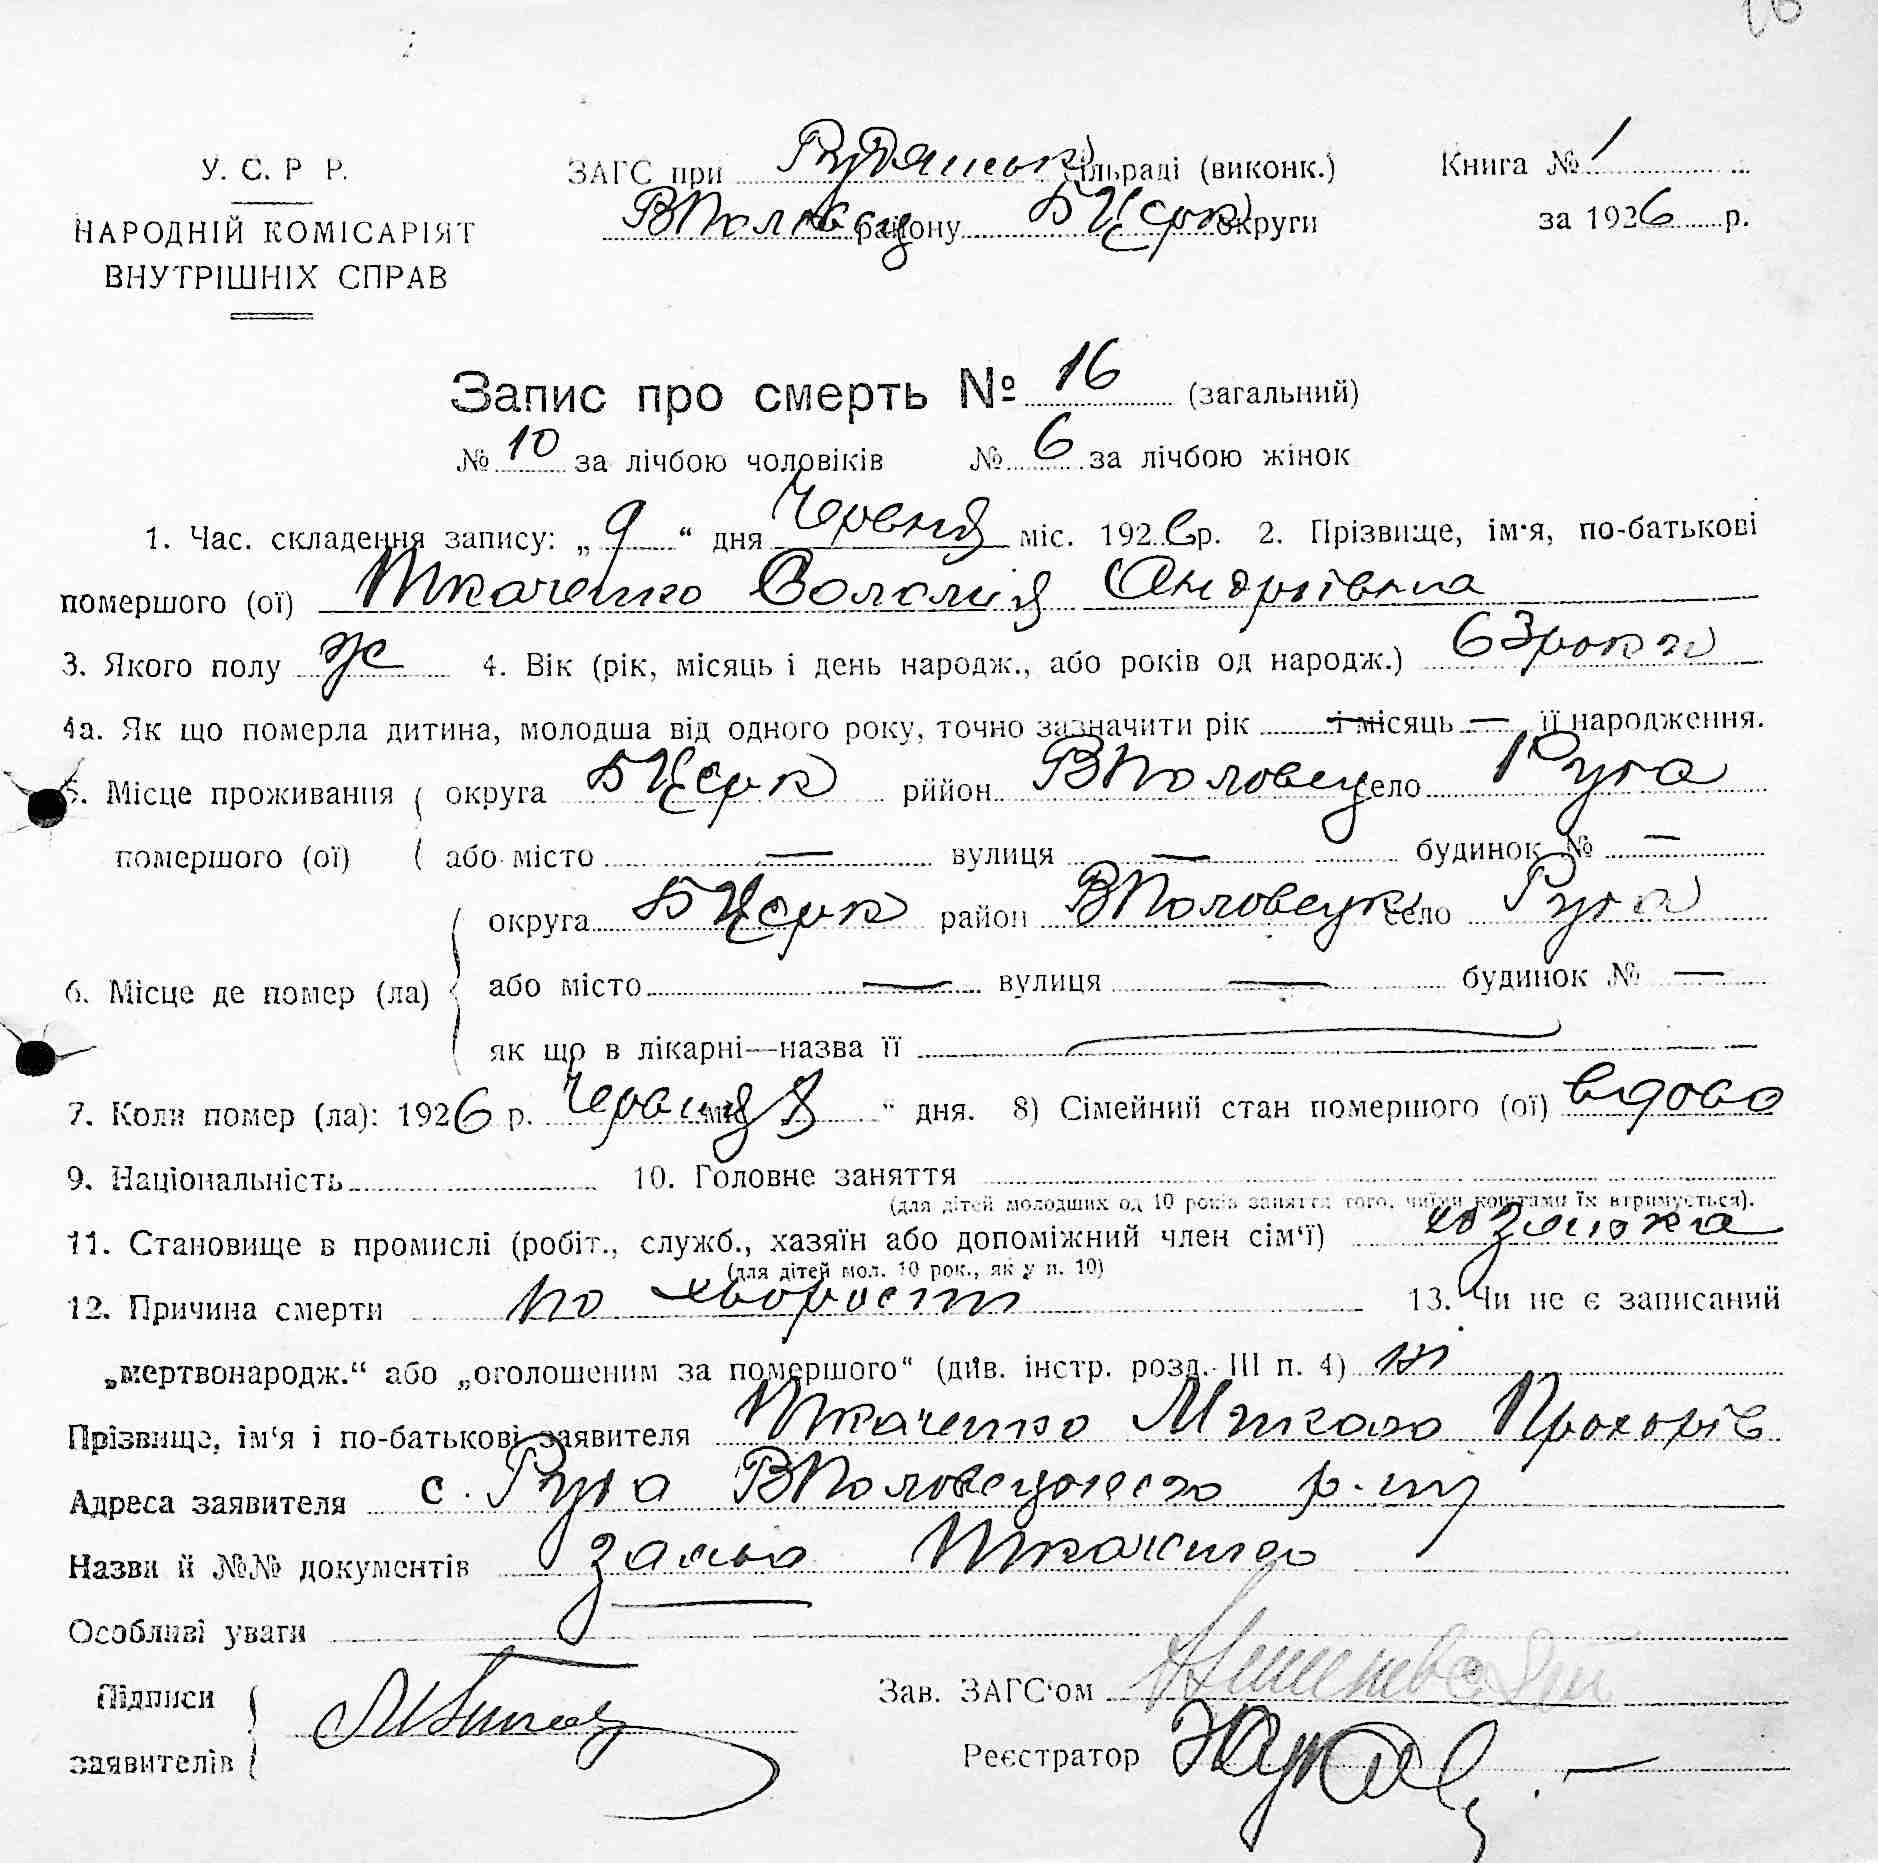 16
У. С. Р Р.
НАРОДНІЙ КОМІСАРІЯТ
ВНУТРІШНІХ СПРАВ
ЗАГС при сільраді (виконк.)
ВПоловец району БЦерк округи
Книга № 1
за 1926 р.
Запис про смерть № 16 (загальний)
№ 10 за лічбою чоловіків № 6 за лічбою жінок
1. Час. складення запису: „9“ дня Червня міс. 1926 р. 2. Прізвище, ім'я, по-батькові
помершого (ої) Ткаченко Соломія Андріївна
3. Якого полу ж 4. Вік (рік, місяць і день народж., або років од народж.) 63 роки
4а. Як що померла дитина, молодша від одного року, точно зазначити рік — і місяць — її народження.
5. Місце проживання округа БЦерк рййон ВПоловец село Руда
помершого (ої) або місто — вулиця — будинок № —
округа БЦерк район ВПоловецьк село Руда
6. Місце де помер (ла) або місто — вулиця — будинок № —
як що в лікарні—назва її —
7. Коли помер (ла): 1926 р. Червня міс 8 “ дня. 8) Сімейний стан помершого (ої) вдова
9. Національність 10. Головне заняття
(для дітей молодших од 10 років заняття того, чиїми коштами їх втримується).
11. Становище в промислі (робіт., служб., хазяїн або допоміжний член сім'ї)
(для дітей мол. 10 рок., як у п. 10)
12. Причина смерти по хворости 13. Чи не є записаний
„мертвонародж.“ або „оголошеним за помершого“ (див. інстр. розд. III п. 4) ні
Прізвище, ім'я і по-батькові заявителя Ткаченко Микола Прохорів
Адреса заявителя с. Руда ВПоловецького р-ну
Назви й №№ документів заява Ткаченко
Особливі уваги
Підписи
заявителів
Зав. ЗАГС'ом
Реєстратор